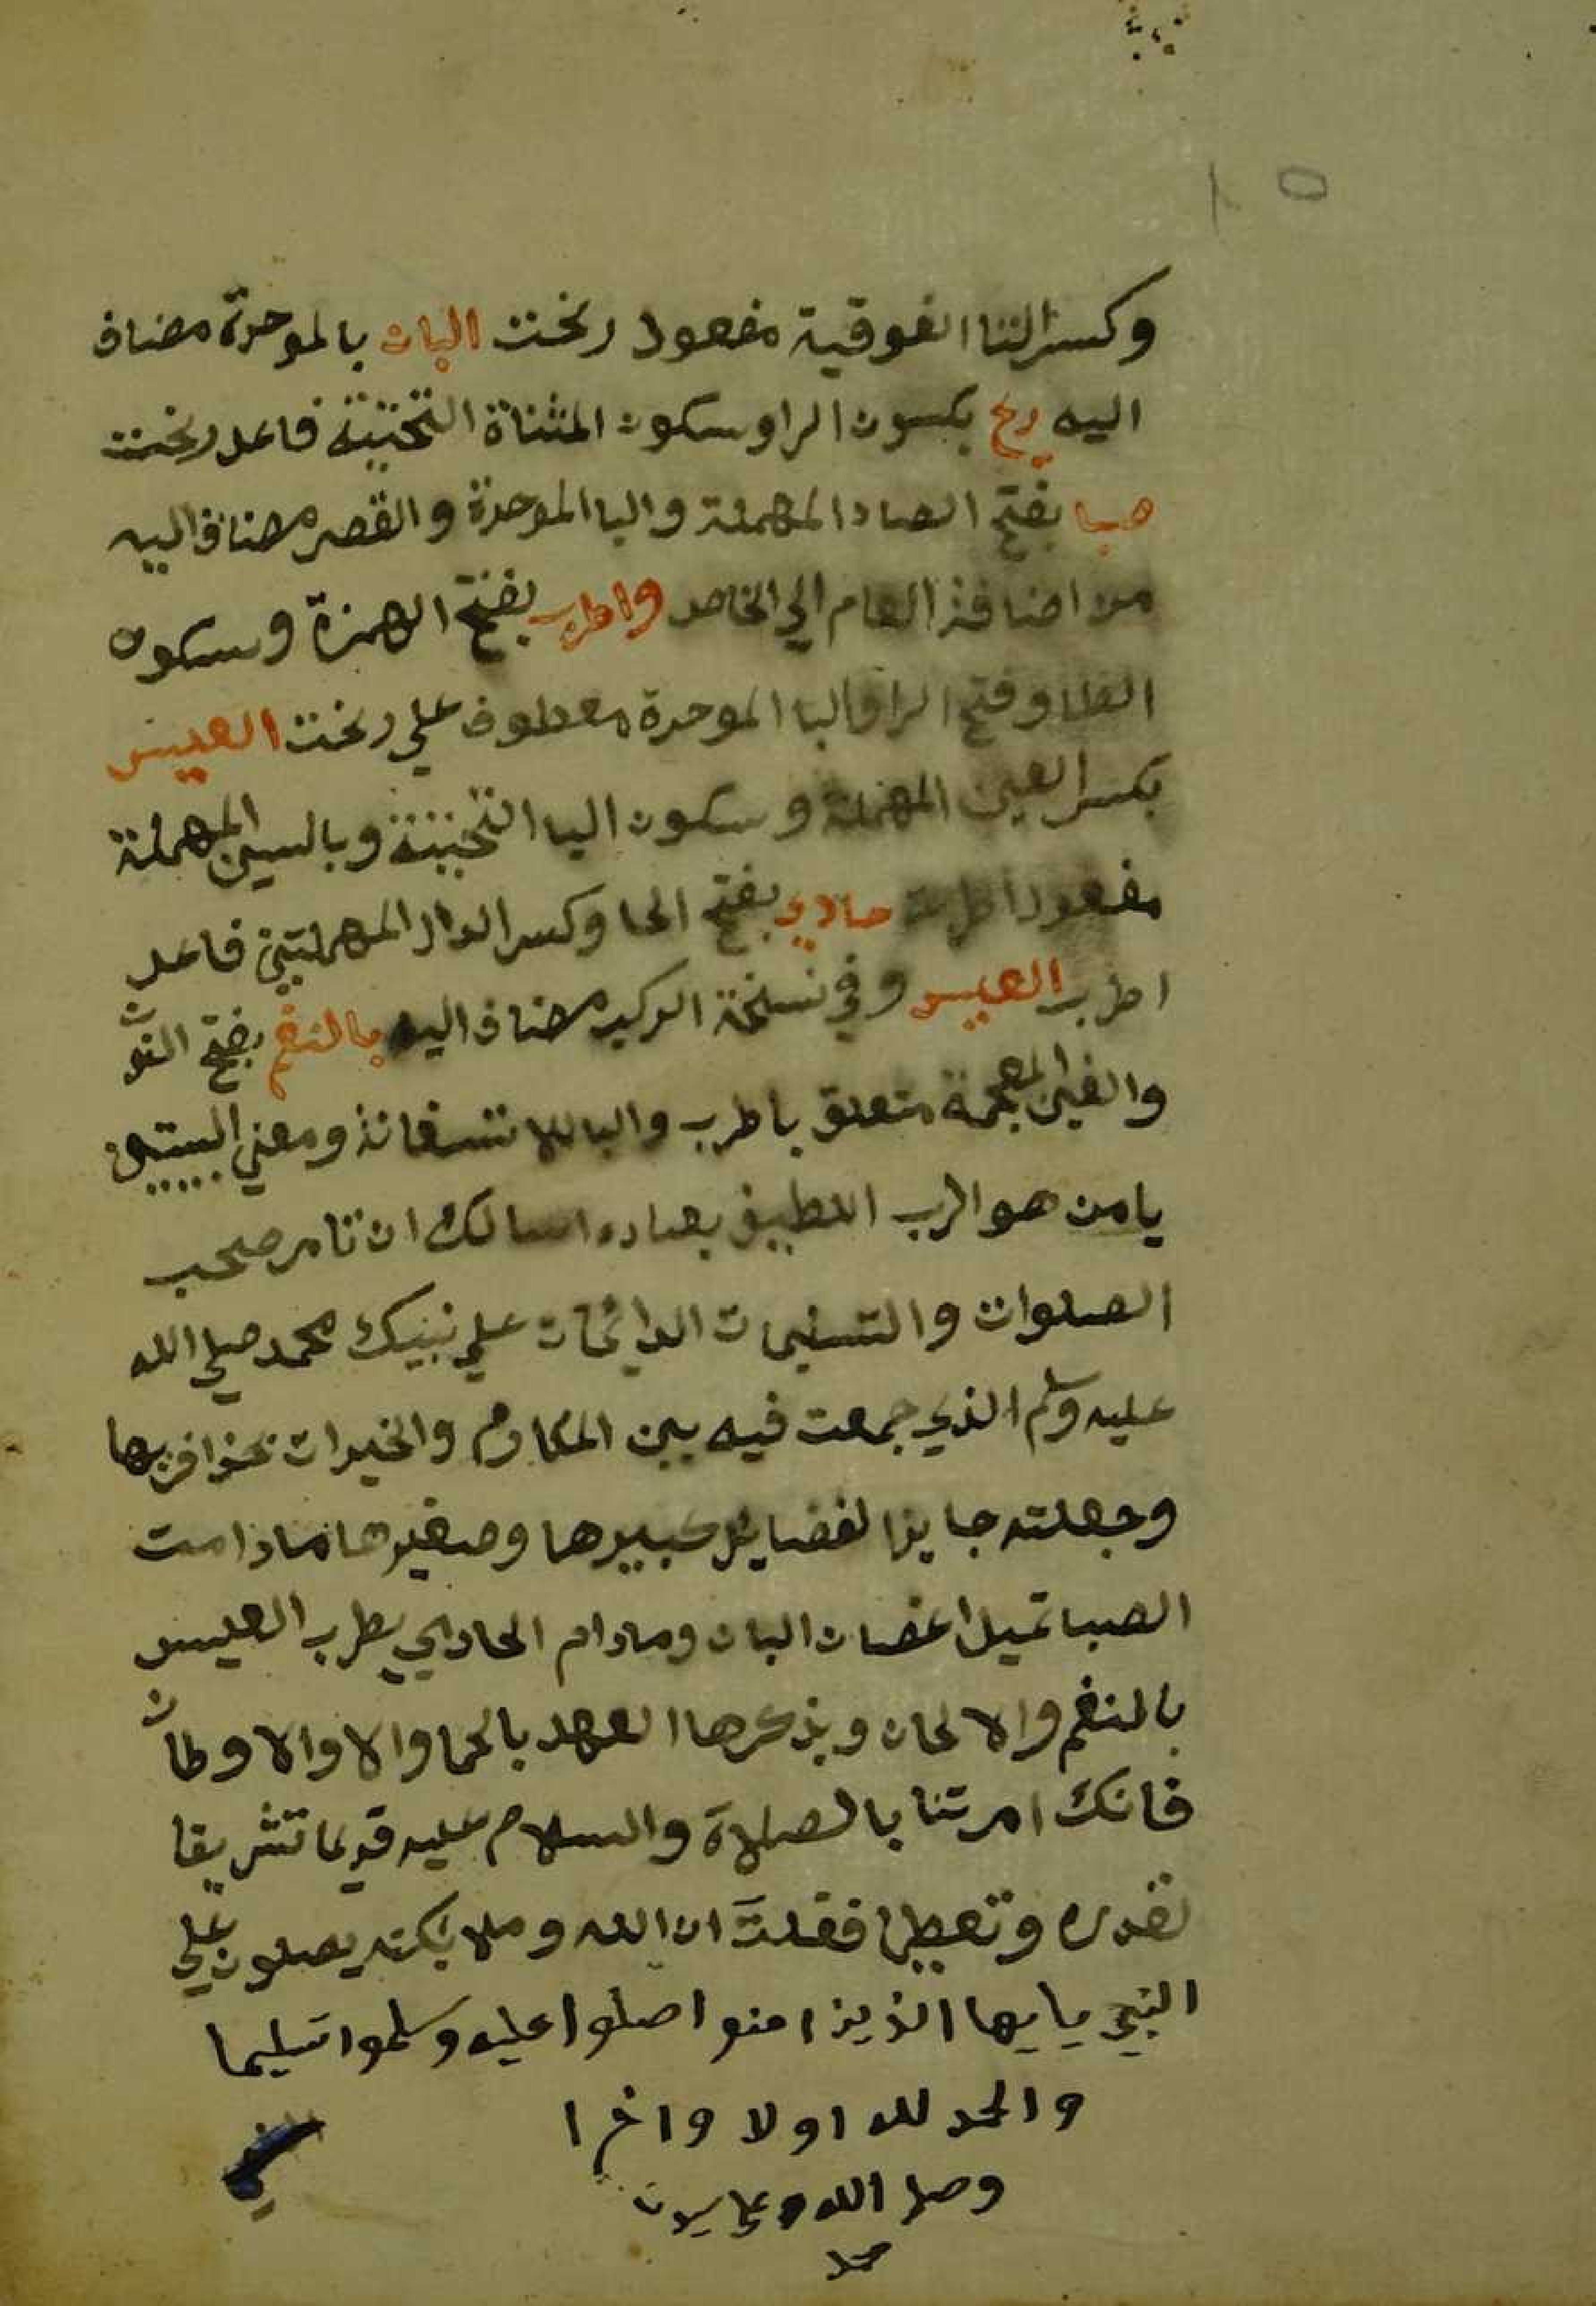 وكسر التا الفوقية مفعول رنحت البان بالموحدة مضاف
اليه ريح بكسون الرا وسكون المثناة التحتية فاعل رنحت
صبا بفتح الصاد المهملة والبا الموحدة والقصر مضاف اليه
من اضافة العام الي الخاص واطرب بفتح الهمزة وسكون
الطا وفتح الرا والبا الموحدة معطوف علي رنحت العيس
بكسر العين المهملة وسكون اليا التحتية وبالسين المهملة
مفعول اطرب حادي بفتح الحا وكسر الدال المهملتين فاعل
اطرب العيس وفي نسخة الركب مضاف اليه بالنغم بفتح النون
والغين المعجمة متعلق باطرب والبا للاستعانة ومعني البيتين
يا من هو الرب اللطيف بعباده اسالك ان تامر صحب
الصلوات والتسليمات الدائمات علي نبيك محمد صلي الله
عليه وسلم الذي جمعت فيه بين المكارم والخيرات بحذافيرها
وجعلته جايز الفضايل كبيرها وصغيرها مادامت
الصبا تميل اغصان البان ومادام الحادي يطرب العيس
بالنغم والالحان ويذكرها العهد بالحما والاوالاوطان
فانك امرتنا بالصلاة والسلام عليه قديما تشريفا
لقدره وتعظيما فقلت ان الله وملايكته يصلون علي
النبي يايها الذين امنوا صلوا عليه وسلموا تسليما
والحمد لله اولا واخرا
وصلي الله علي سيدنا
محمد